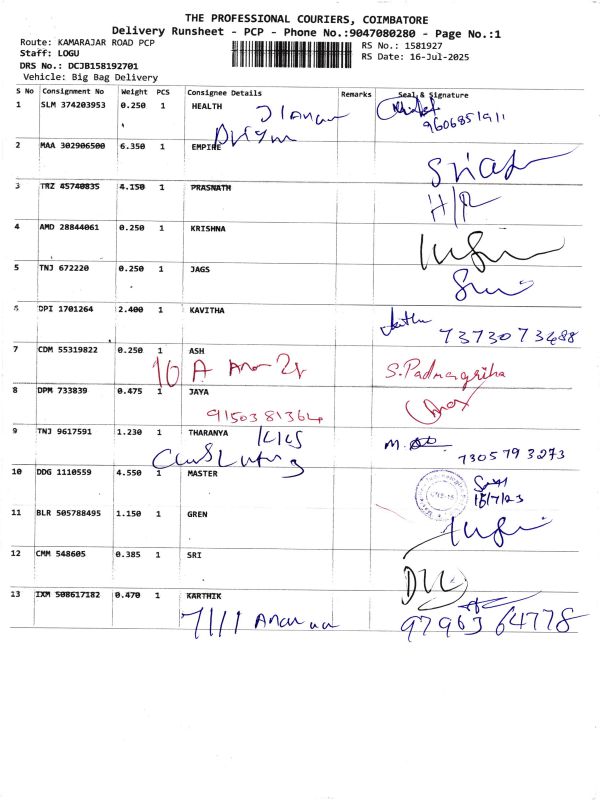 THE PROFESSIONAL COURIERS, COIMBATORE
Delivery Runsheet - PCP - Phone No.:9047080280 - Page No.:1
Route: KAMARAJAR ROAD PCP
RS No.: 1581927
Staff: LOGU
RS Date: 16-Jul-2025
DRS No.: DCJB158192701
Vehicle: Big Bag Delivery
S No Consignment No Weight PCS Consignee Details Remarks Seal & Signature
1 SLM 374203953 0.250 1 HEALTH
9606851911
2 MAA 302906500 6.350 1 EMPIRE
3 TRZ 4574083S 4.150 1 PRASNATH
H/R
4 AMD 28844061 0.250 1 KRISHNA
5 TNJ 672220 0.250 1 JAGS
6 DPI 1701264 2.400 1 KAVITHA
7373073488
7 CDM 55319822 0.250 1 ASH
S. Padmapriha
8 DPM 733839 0.475 1 JAYA
9150381364
9 TNJ 9617591 1.230 1 THARANYA
M.
7305793273
10 DDG 1110559 4.550 1 MASTER
11 BLR 505788495 1.150 1 GREN
12 CMM 548605 0.385 1 SRI
13 IXM 508617182 0.470 1 KARTHIK
9796364778